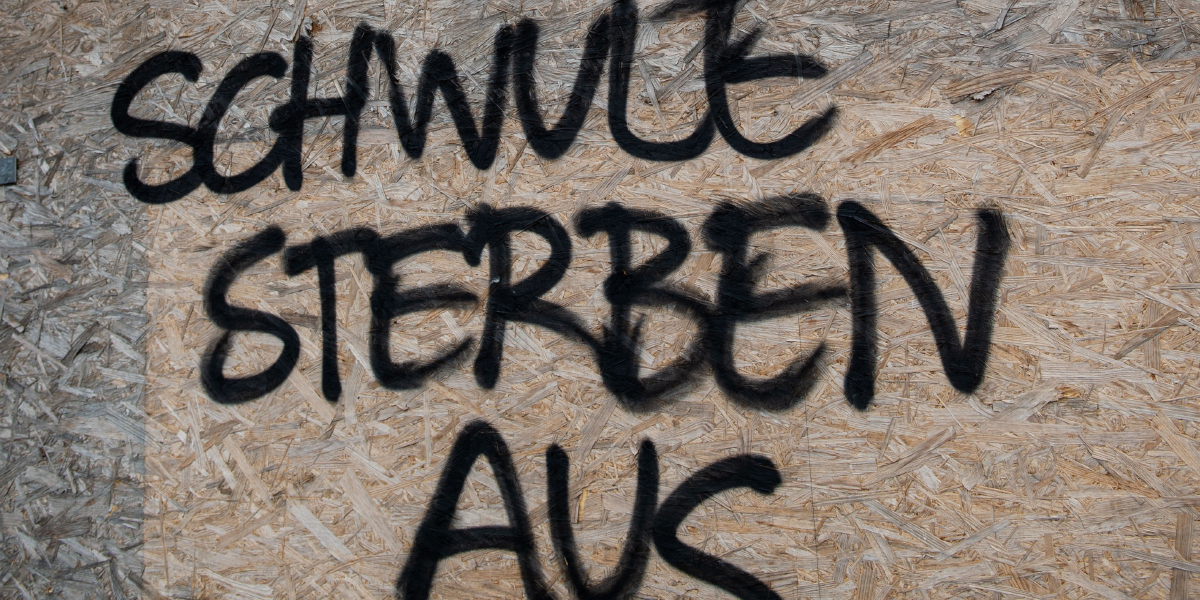 SCHWULE
STERBEN
AUS